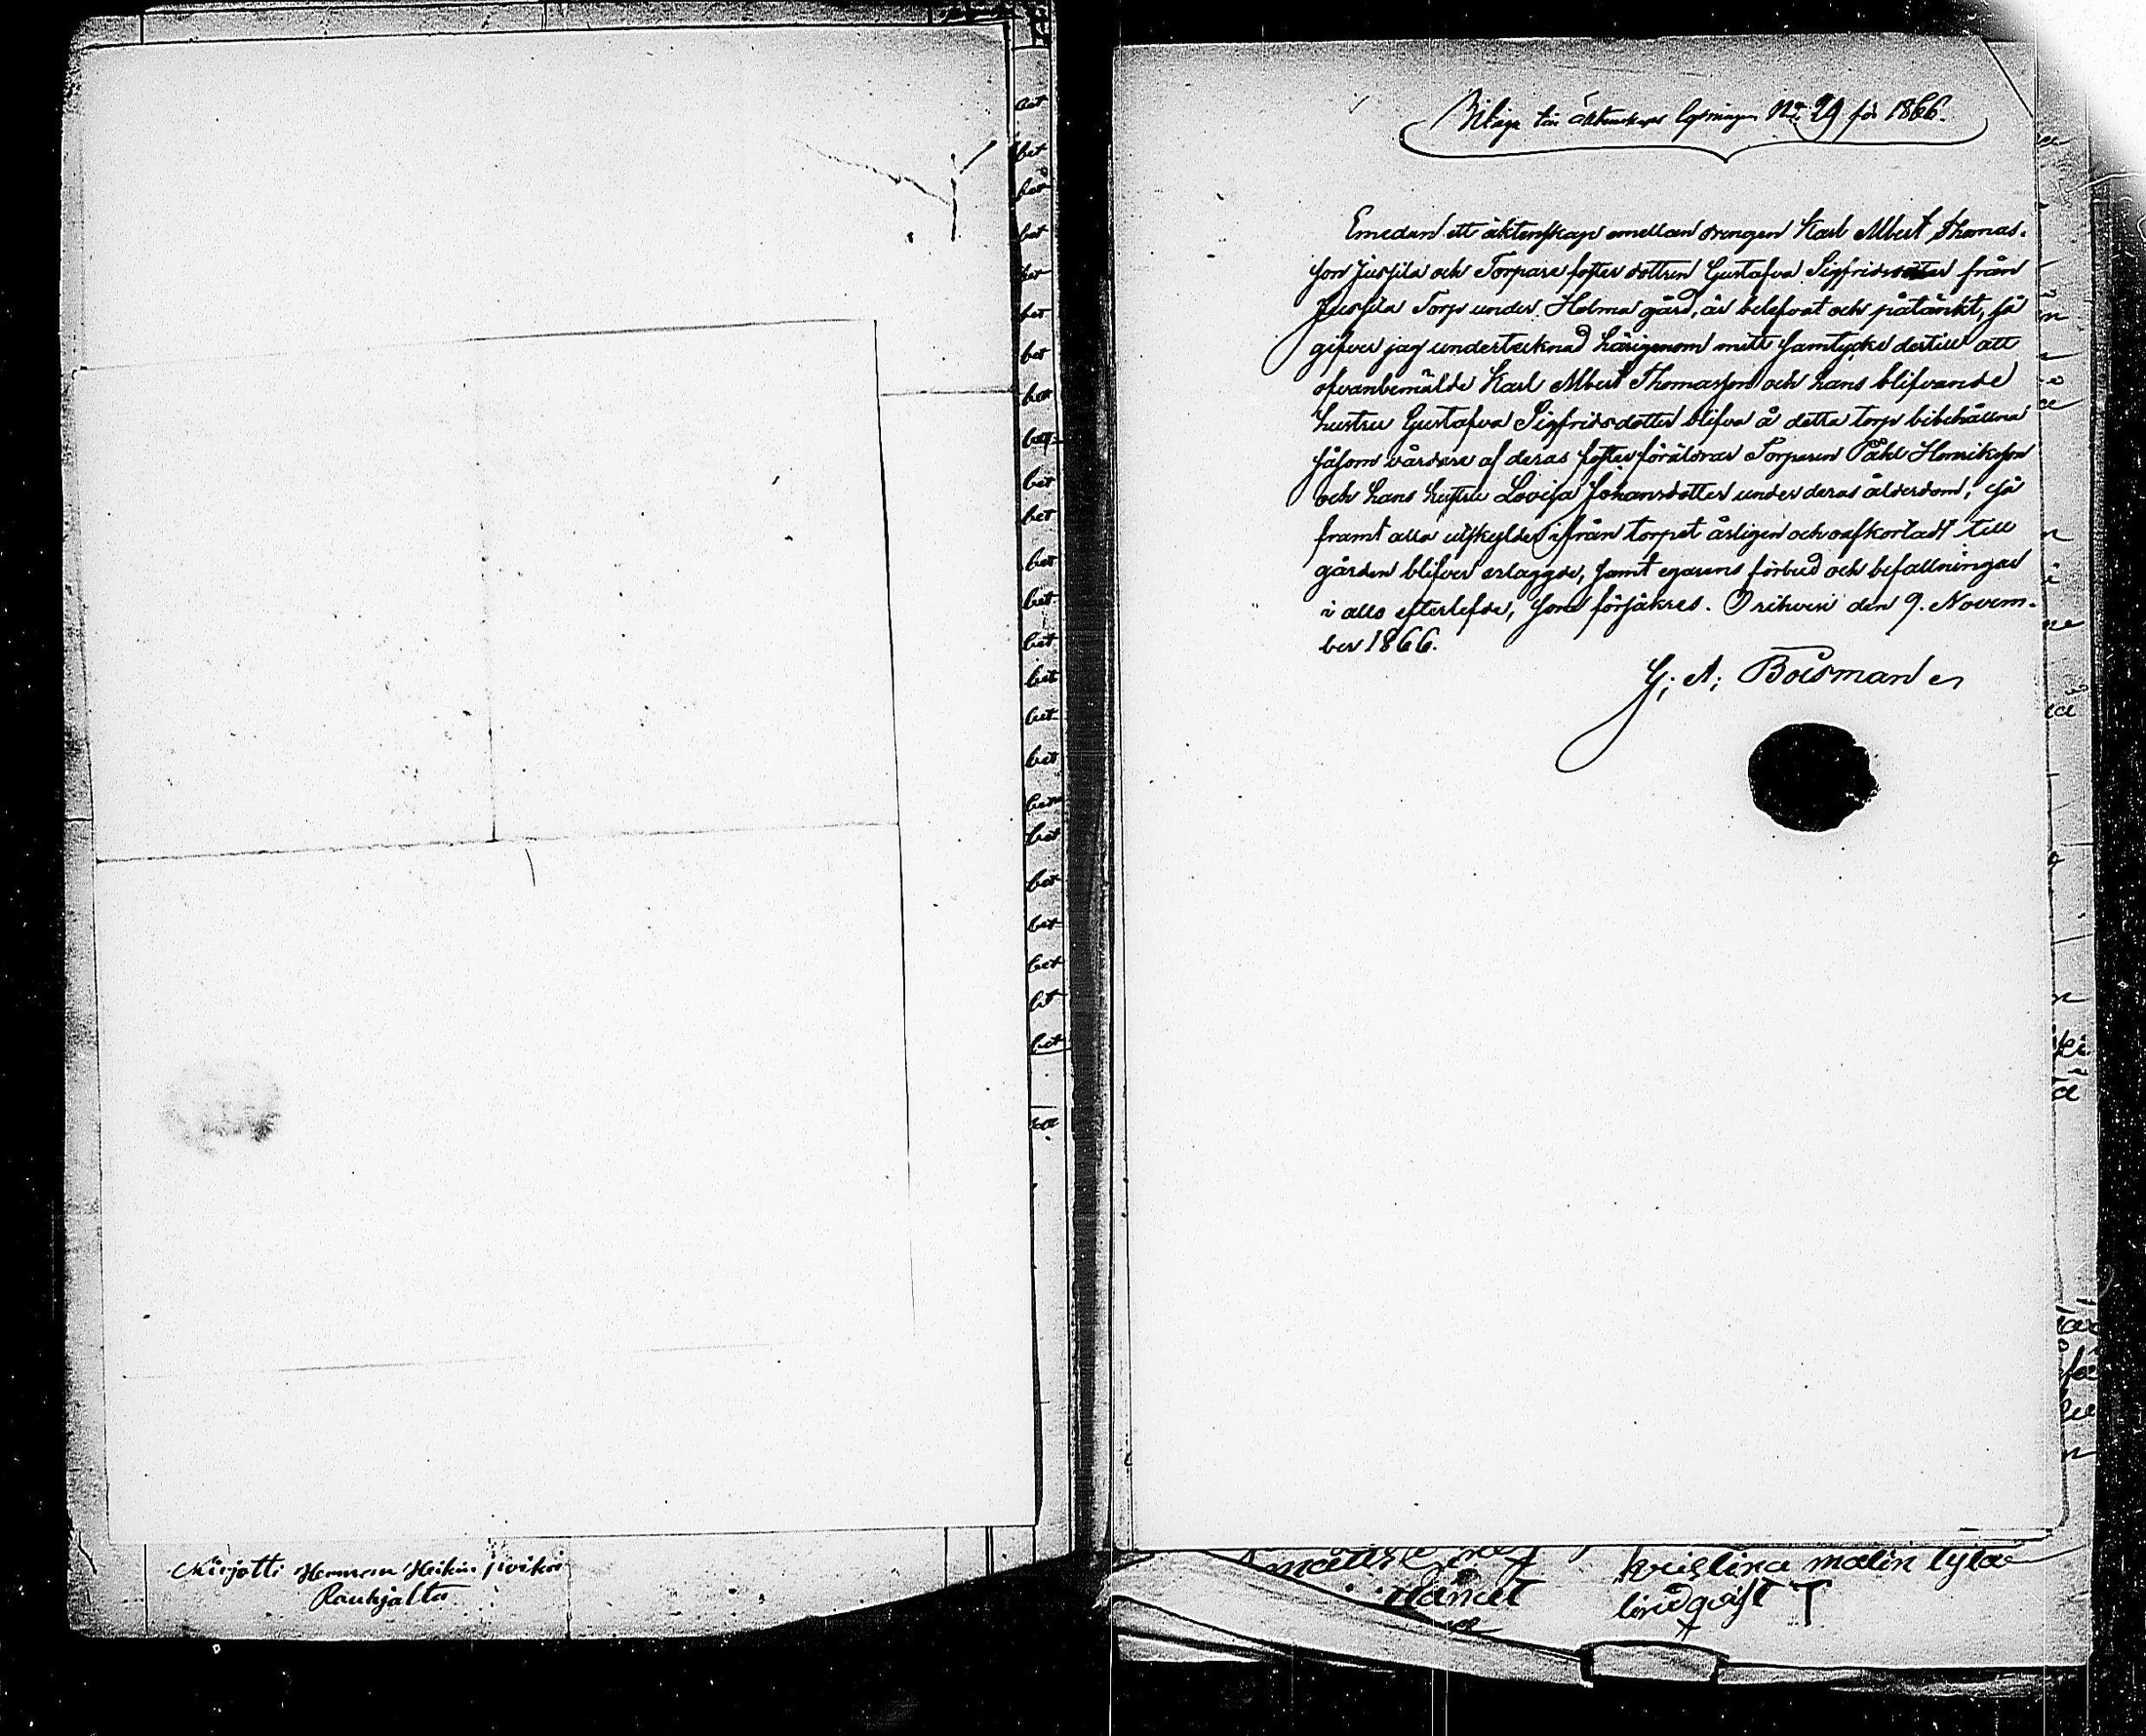 bet
bet
bet
bet
bet
bet
bet
bet
bet
bet
bet
bet
bet
bet
bet
bet
bet
bet
bet
bet
bet
bet
bet
Kirjotti Herman Heikin
Raukjalta
Bilaga till äktenskaps lysningen No 29 för 1866.
Emedan ett äktenskap emellan drengen Karl Albert Thomas-
son Jussila och Torpare foster dottren Gustafva Sigfridsdotter från
Jussila Torp under Holma gård, är belefvat och påtänkt, så
gifver jag undertecknad härigenom mitt samtycke dertill att
ofvanbemälde Karl Albert Thomasson och hans blifvande
hustru Gustafva Sigfridsdotter blifva å detta torp bibehållna
såsom vårdare af deras fosterföräldrar Torparen Påhl Henriksson
och hans hustru Lovisa Johansdotter under deras ålderdom, så
framt alla utskylder ifrån torpet årligen och oafkortadt till
gården blifver erlaggde, samt egarens förbud och befallningar
i allo efterlefde, som försäkras. Orihvesi den 9. Novem-
ber 1866.
G; A; Boisman
kristina malin
lindqvist